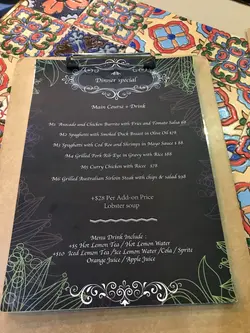 Dinner special
Main Course + Drink
Avocado and Chicken Burrito with Fries and Tomato Salsa
Spaghetti with Smoked Duck Breast in Olive Oil
Spaghetti with Cod Roe and Shrimps in Mayo Sauce
Grilled Pork Rib Eye in Gravy with Rice
Curry Chicken with Rice
Grilled Australian Sirloin Steak with chips & salad
+$28 Per Add-on Price
Lobster soup
Menu Drink Include :
Hot Lemon Tea / Hot Lemon Water
Iced Lemon Tea /Ice Lemon Water /Cola / Sprite
Orange Juice / Apple Juice